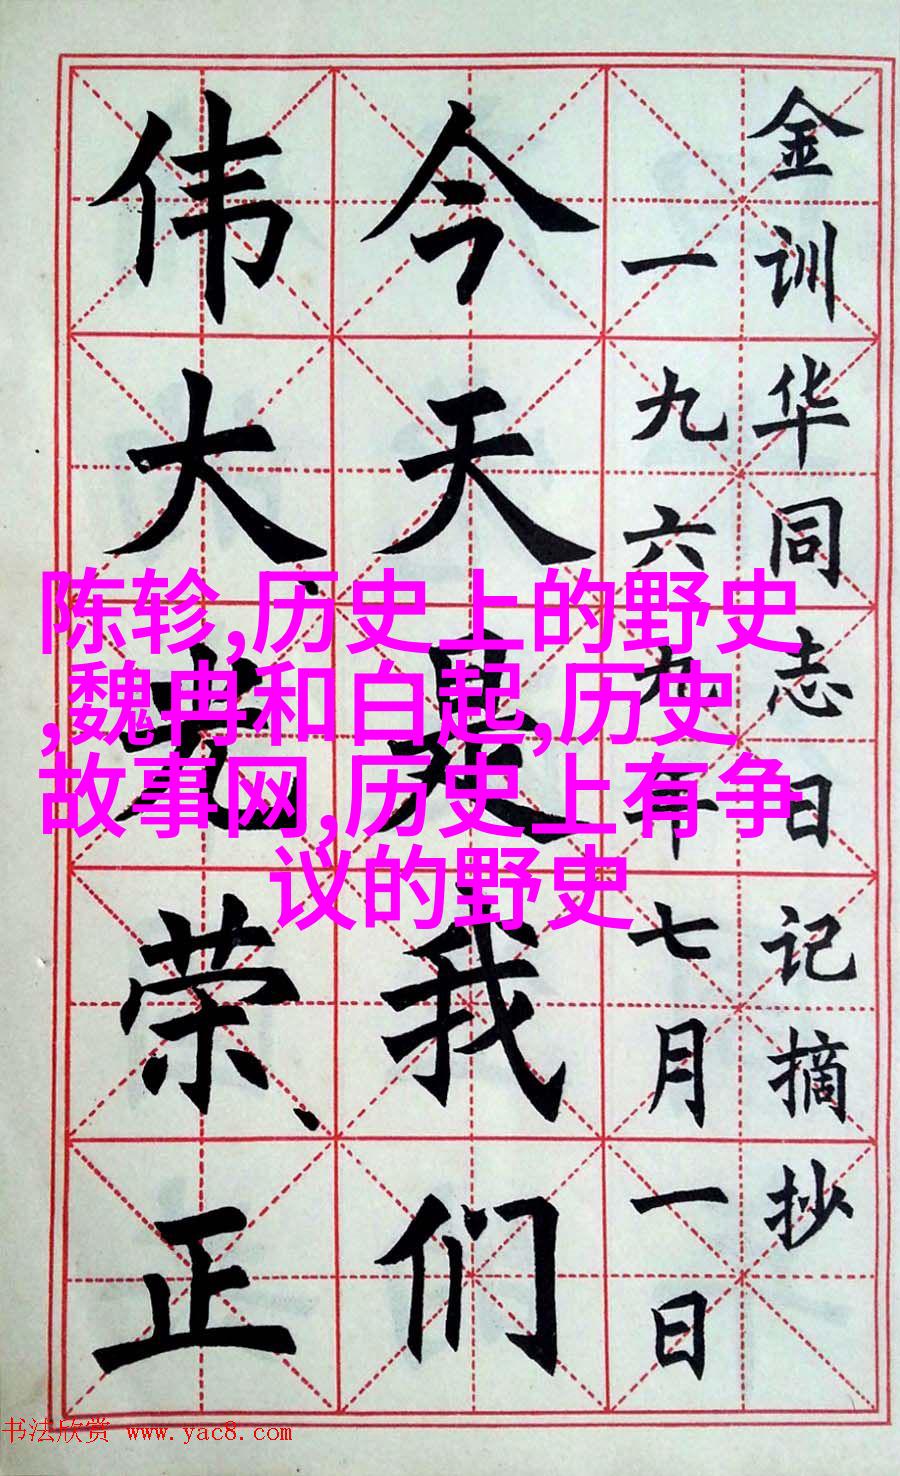 金训华同志日记摘抄
一九六九年七月一日
今天是我们
伟大、光荣、正
陈轸,历史上的野史
,魏冉和白起,历史
故事网,历史上有争
议的野史
书法欣赏 www.yac8.com